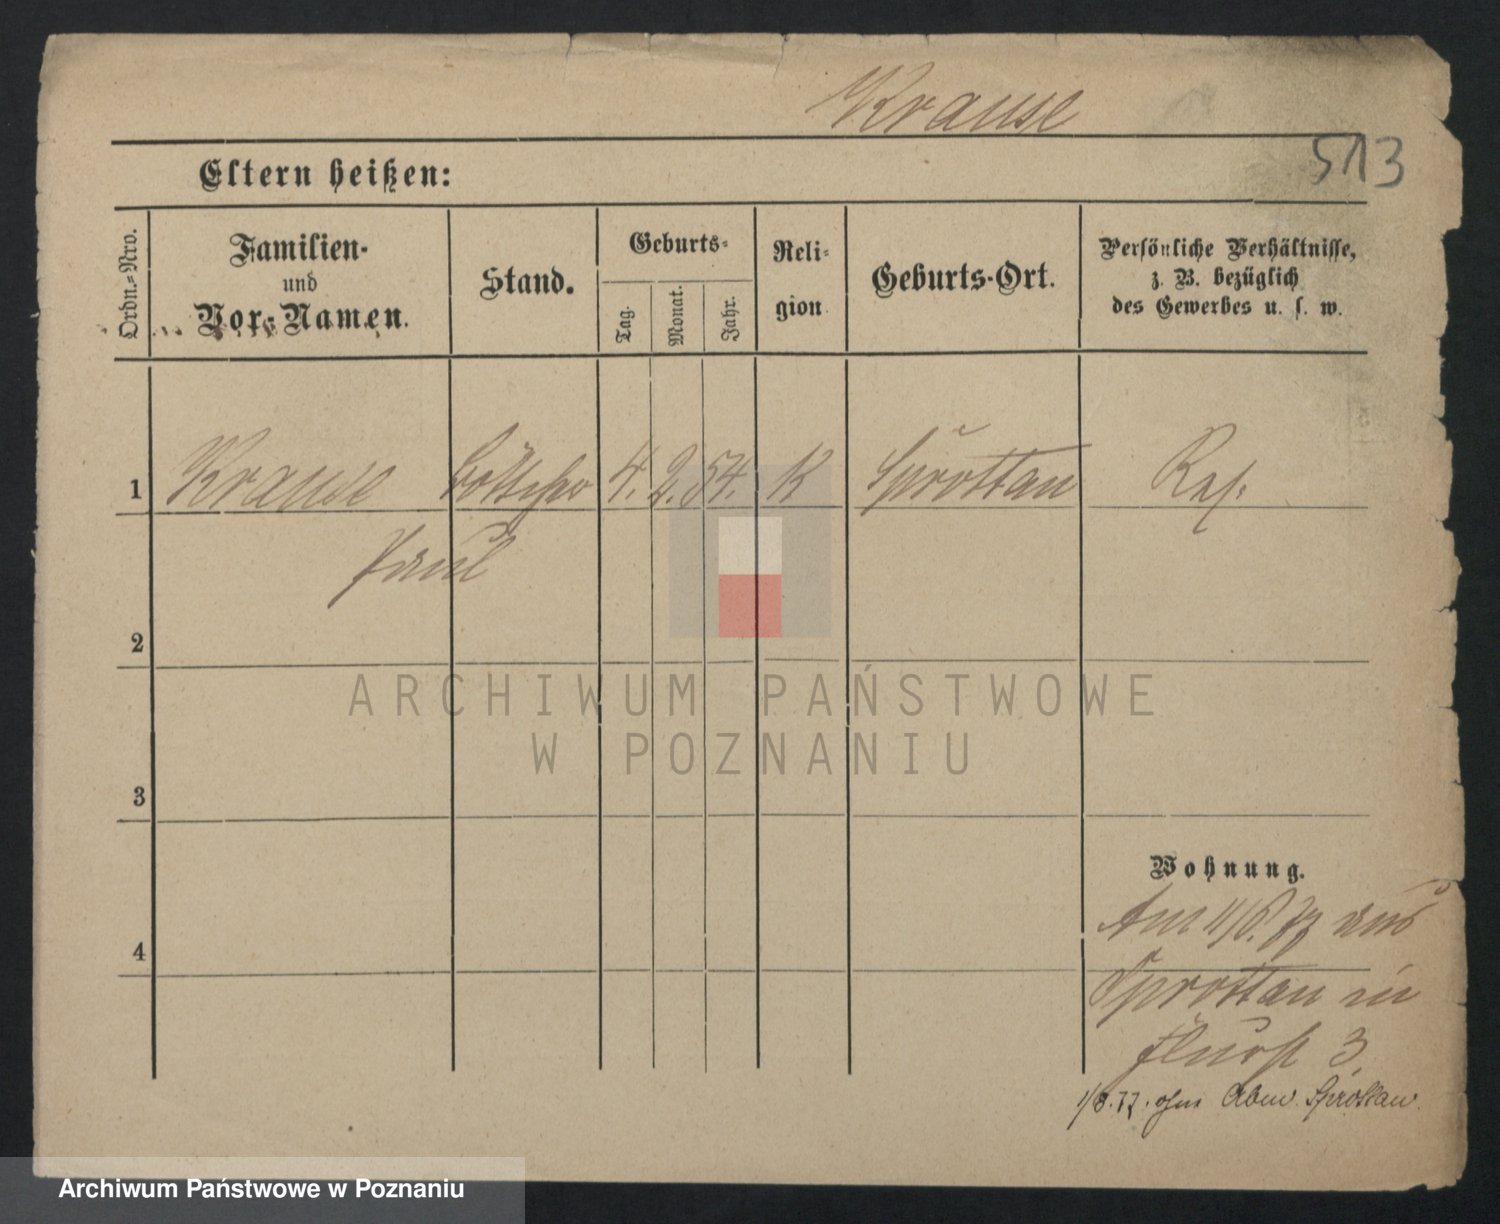 Krause
513
Eltern heißen:
Ordn.-Nro.
Familien-
und
Vor-Namen.
Stand.
Geburts-
Tag.
Monat.
Jahr.
Reli-
gion
Geburts-Ort.
Persönliche Verhältnisse,
z. B. bezüglich
des Gewerbes u. s. w.
1 Krause Böttcher 4. 2. 54. K Sprottau
Paul
2
3
4
Wohnung.
Am 11/6. 77 aus
Sprottau in
3
1/8.77. ohne Abm. Sprottau.
ARCHIWUM PAŃSTWOWE
W POZNANIU
Archiwum Państwowe w Poznaniu